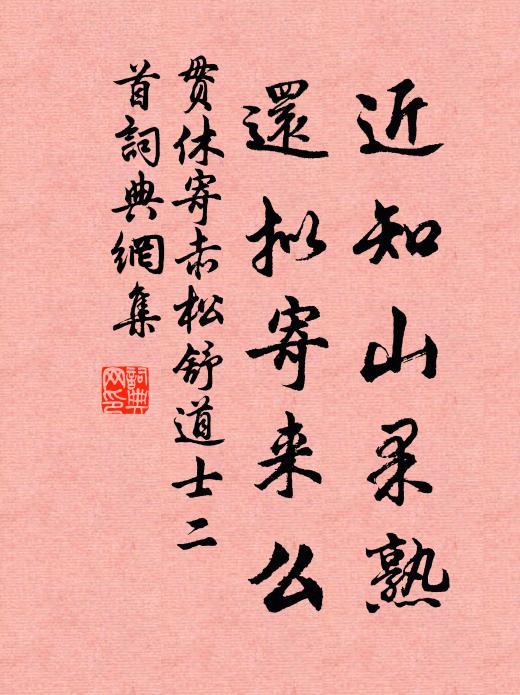 近知山果熟
還拟寄来么
贯休寄赤松舒道士二
首詞典網集
詞典
网印